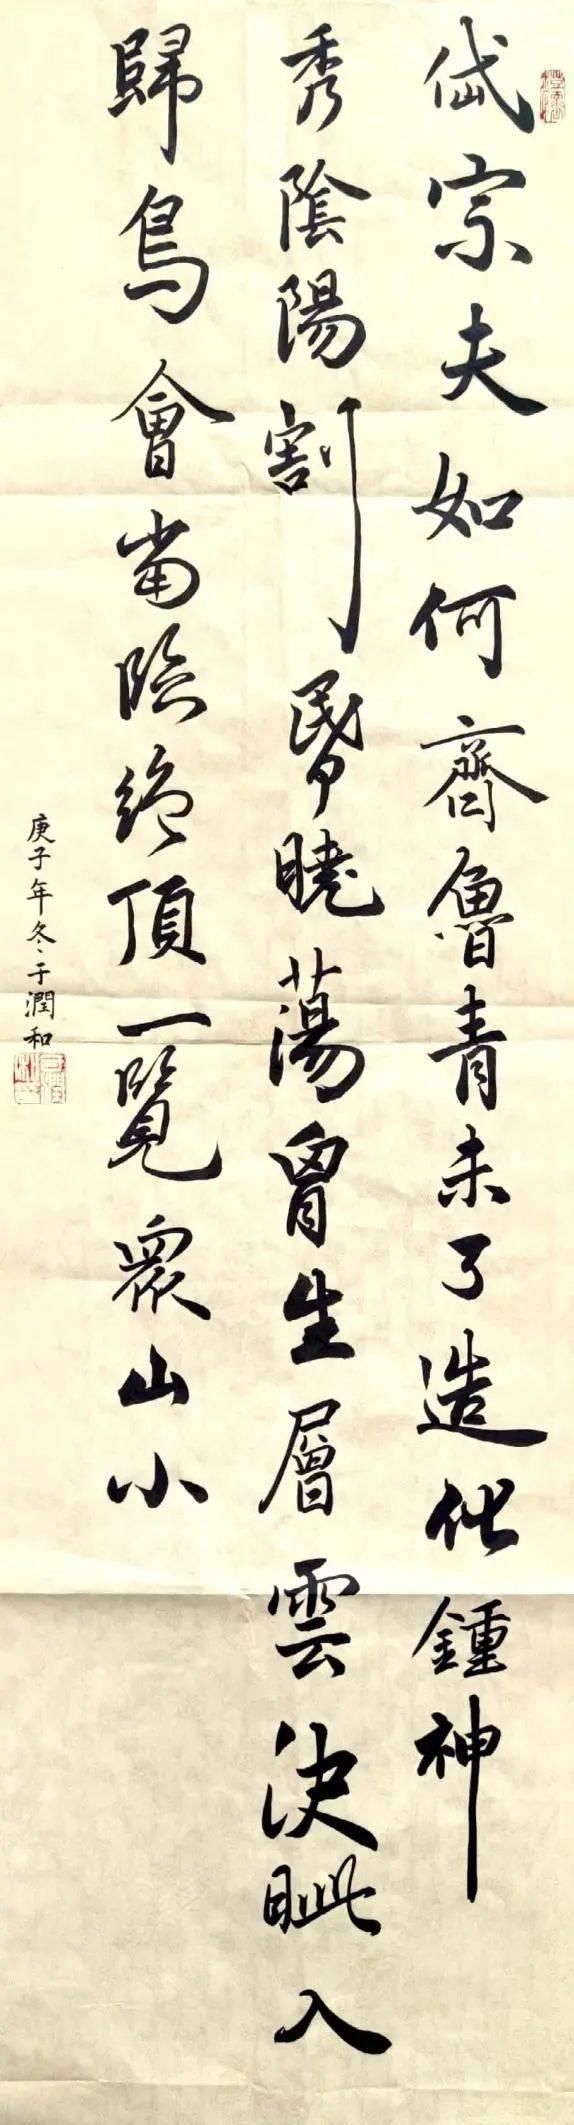 岱宗夫如何齊魯青未了造化鍾神
秀陰陽割昬曉蕩胷生層雲決眦入
歸鳥會當臨絕頂一覽眾山小
庚子年冬于潤和